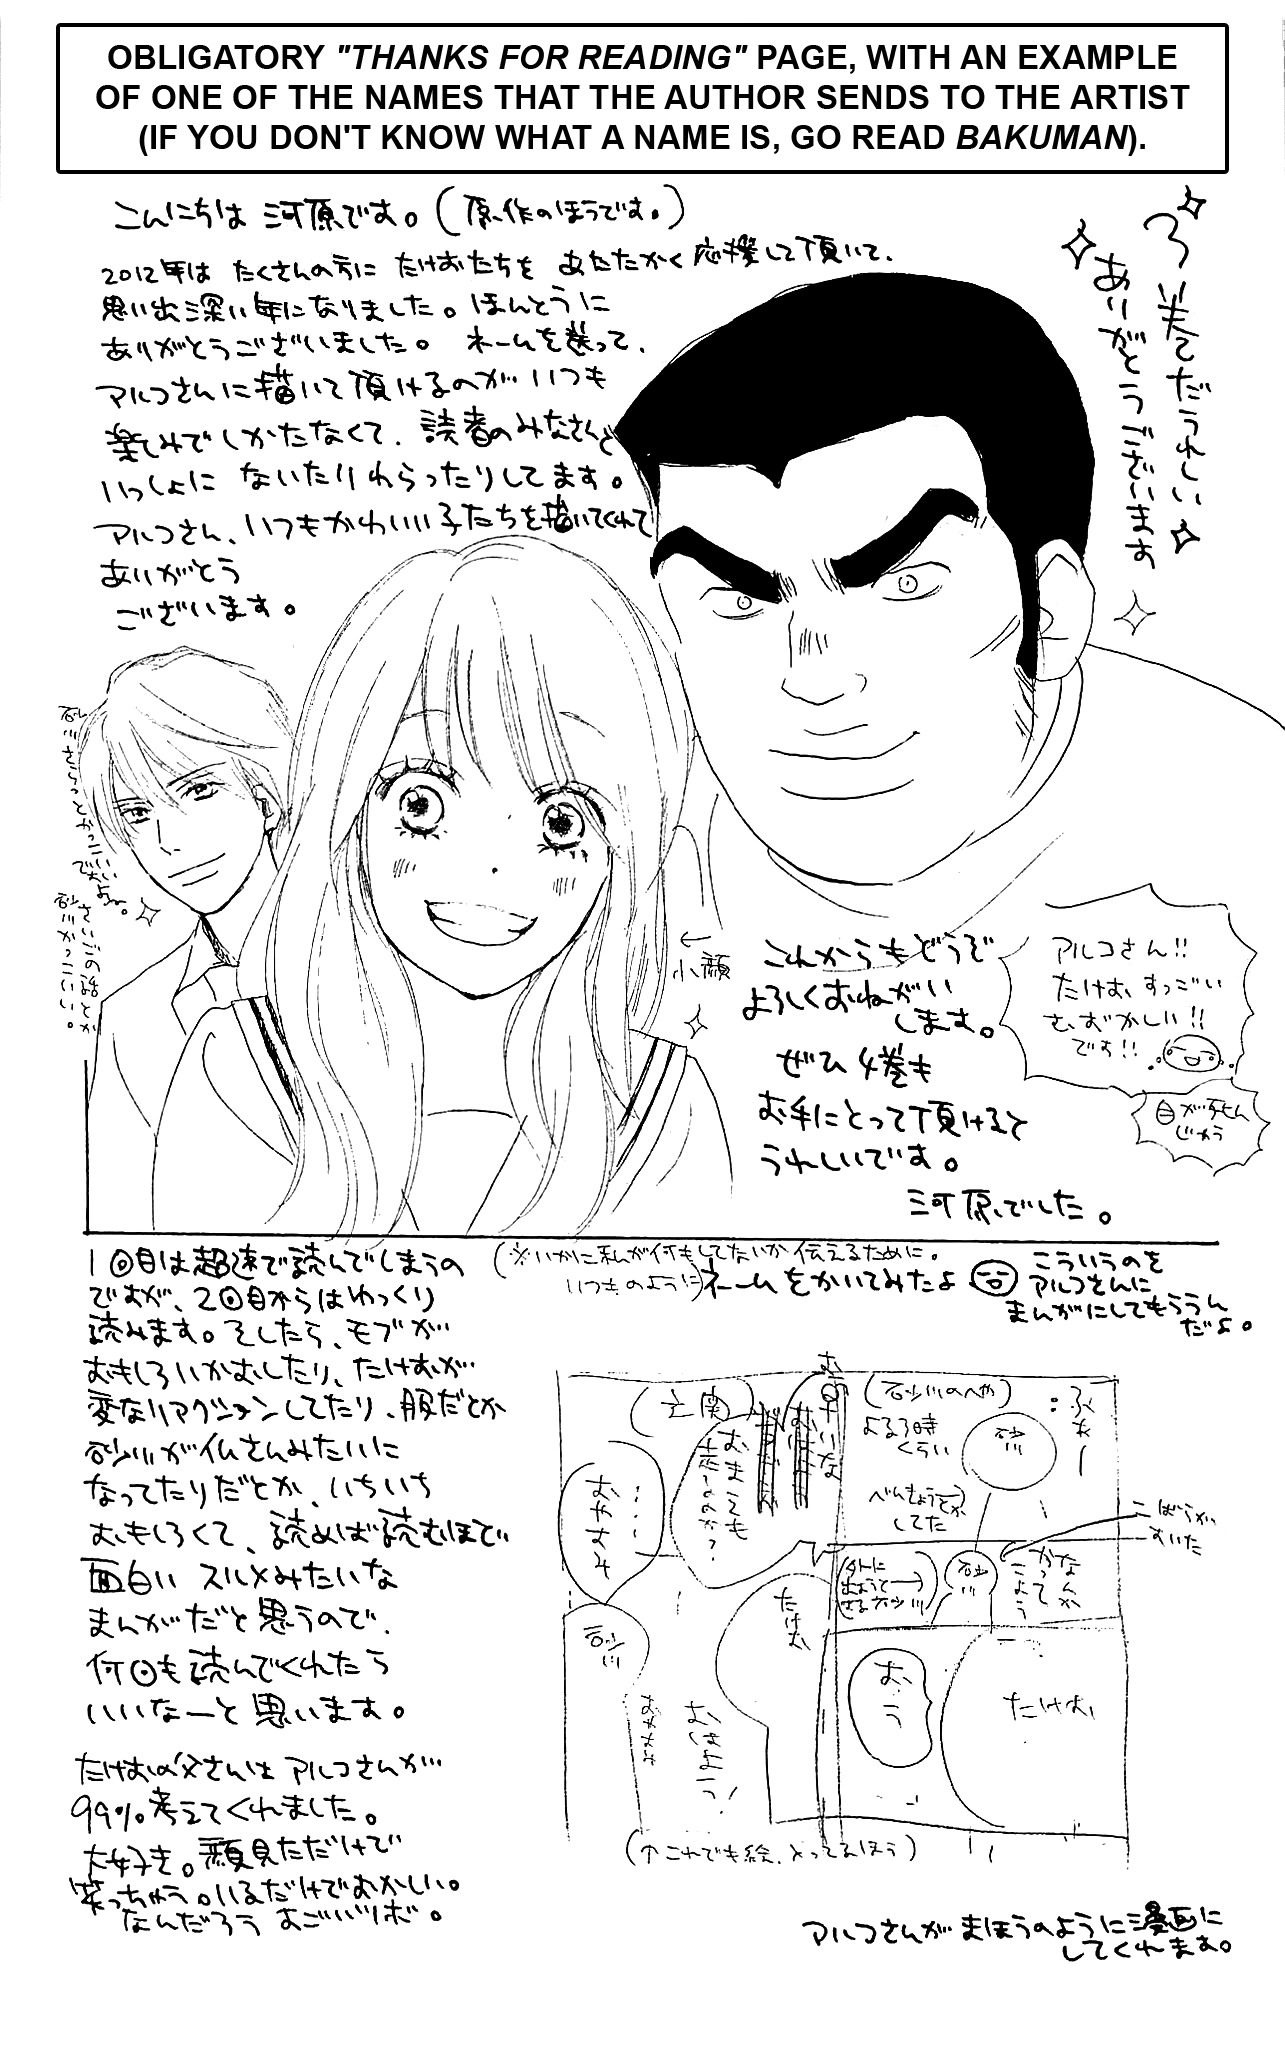 OBLIGATORY "THANKS FOR READING" PAGE, WITH AN EXAMPLE
OF ONE OF THE NAMES THAT THE AUTHOR SENDS TO THE ARTIST
(IF YOU DON'T KNOW WHAT A NAME IS, GO READ BAKUMAN).
こんにちは 河原です。(原作のほうです。)
2012年は たくさんの方に たけおたちを あたたかく応援して頂いて、
思い出深い年になりました。ほんとうに
ありがとうございました。 ネームを送って、
アルコさんに描いて頂けるのが いつも
楽しみでしかたなくて、読者のみなさんと
いっしょに ないたりわらったりしてます。
アルコさん、いつもかわいい子たちを描いてくれて
ありがとう
ございます。
3巻だうれしい
ありがとうございます
砂川さらっとかっこいい
ですよね。
さいごの話とか
砂川かっこいい。
←
小顔
これからもどうぞ
よろしくおねがい
します。
ぜひ 4巻も
お手にとって頂けると
うれしいです。
河原でした。
アルコさん!!
たけお、すっごい
むずかしい!!
です!!
目が死んじゃう
1回目は超速で読んでしまうの
ですが、2回目からはゆっくり
読みます。そしたら、モブが
おもしろいかおしたり、たけおが
変なリアクションしてたり、服だとか
砂川が仏さんみたいに
なってたりだとか、いちいち
おもしろくて、読めば読むほど
面白い スルメみたいな
まんがだと思うので、
何回も読んでくれたら
いいなーと思います。
たけおの父さんは アルコさんが
99%考えてくれました。
大好き。顔見ただけで
笑っちゃう。いるだけでおかしい。
なんだろう すごいリボ。
(※いかに私が何もしてないか伝えるために。
いつものように)ネームをかいてみたよ
こういうのを
アルコさんに
まんがにしてもらうん
だよ。
(砂川のへや)
よる3時
くらい
べんきょうとか
してた
砂川
ふわー
こばらが
すいた
なんか
かって
こよう
砂川
(外に
出ようと
する砂川)
たけお
おう
(玄関)
おまえも
たけお
おはよう!
……
おやすみ
砂川
(↑これでも絵、とってるほう)
アルコさんが まほうのように漫画に
してくれます。